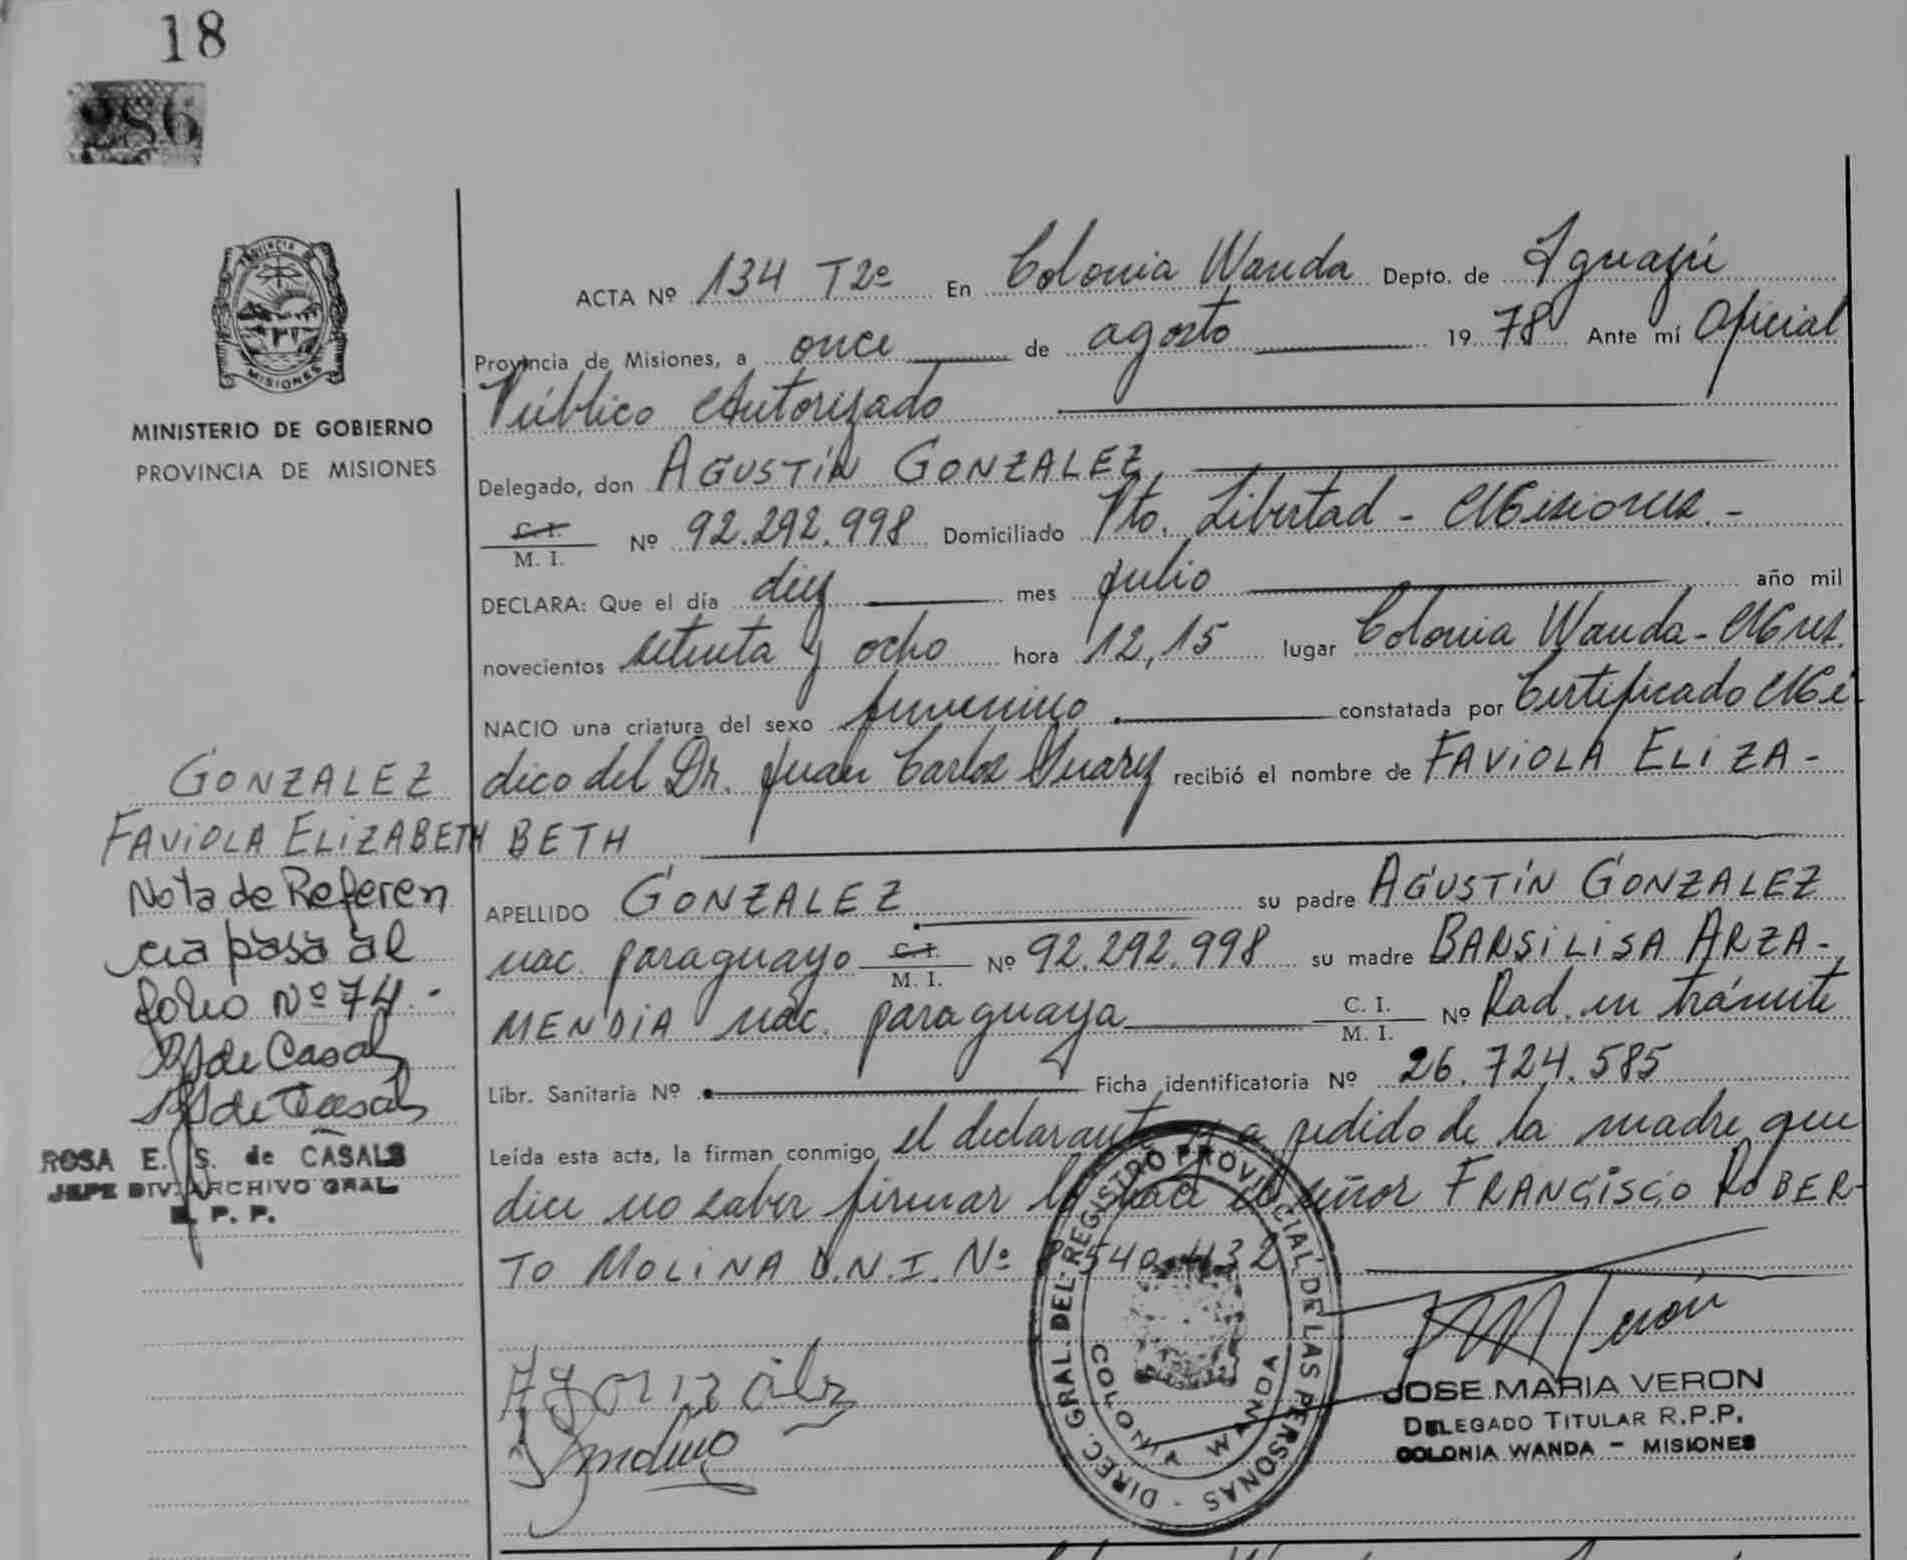 18
286
PROVINCIA DE
MISIONES
MINISTERIO DE GOBIERNO
PROVINCIA DE MISIONES
ACTA Nº 134 T2º En Colonia Wanda Depto. de Iguazú
Provincia de Misiones, a once de agosto 1978 Ante mí Oficial
Público Autorizado
Delegado, don AGUSTÍN GONZALEZ
C. I.
M. I. Nº 92.292.998 Domiciliado Pto. Libertad - Misiones. -
DECLARA: Que el día diez mes julio año mil
novecientos setenta y ocho hora 12,15 lugar Colonia Wanda - Mnes.
NACIO una criatura del sexo femenino constatada por Certificado Mé-
dico del Dr. Juan Carlos Suarez recibió el nombre de FAVIOLA ELIZA-
BETH
APELLIDO GONZALEZ su padre AGUSTÍN GONZALEZ
nac. paraguayo C. I.
M. I. Nº 92.292.998 su madre BARSILISA ARZA-
MENDIA nac. paraguaya C. I.
M. I. Nº Rad. en trámite
Libr. Sanitaria Nº Ficha identificatoria Nº 26.724.585
Leída esta acta, la firman conmigo el declarante y a pedido de la madre que
dice no saber firmar lo hace el señor FRANCISCO ROBER-
TO MOLINA D.N.I. Nº 8.540.432
GONZALEZ
FAVIOLA ELIZABETH
Nota de Referen
cia pasa al
folio Nº 74.-
RS de Casals
RS de Casals
ROSA E. S. de CASALS
JEFE DIV. ARCHIVO GRAL.
R. P. P.
A Gonzalez
DIREC. GRAL. DEL REGISTRO PROVINCIAL DE LAS PERSONAS -
COLONIA WANDA
JOSE MARIA VERON
DELEGADO TITULAR R.P.P.
COLONIA WANDA - MISIONES